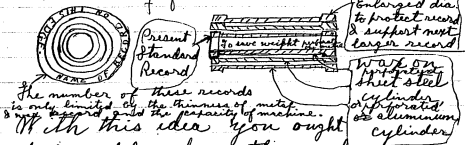 NAME OF RECORD ON THIS EDGE
Present
Standard
Record
To save weight
Enlarged dia
to protect record
& support next
larger record
Wax on
perforated
sheet steel
cylinder
or perforated
or aluminum
cylinder
The number of these records
is only limited by the thinness of metal
record and the capacity of machine.
With this idea you ought